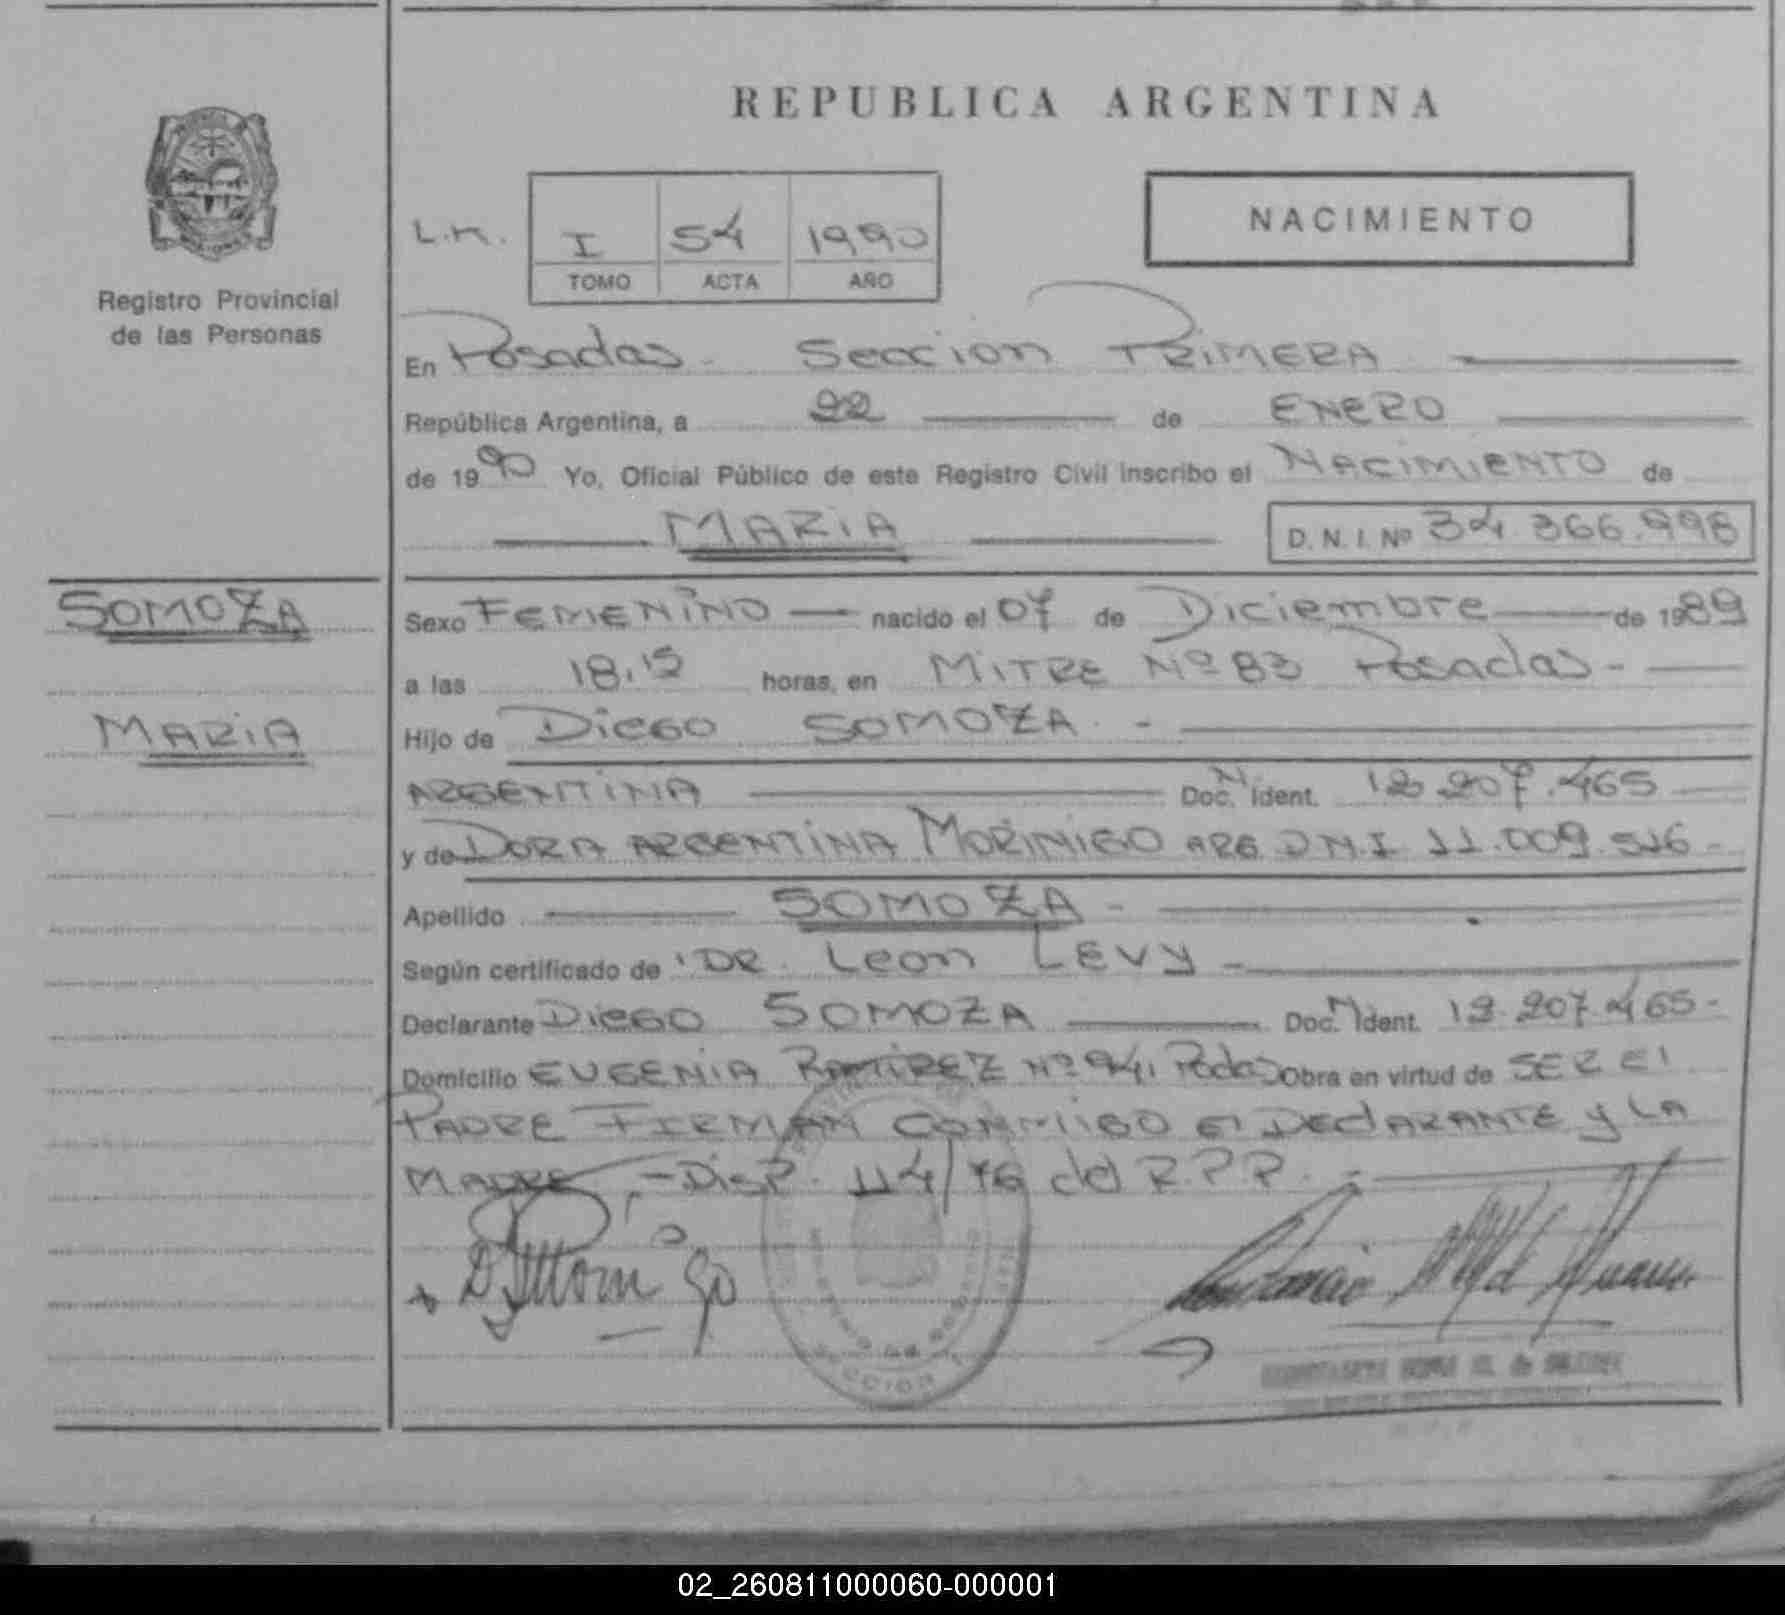 REPUBLICA ARGENTINA
Registro Provincial
de las Personas
L.N. I 54 1990
TOMO ACTA AÑO
NACIMIENTO
En Posadas - Seccion PRIMERA
República Argentina, a 22 de ENERO
de 1990 Yo, Oficial Público de este Registro Civil inscribo el NACIMIENTO de
MARIA
D. N. I. Nº 34.366.998
SOMOZA
MARIA
Sexo FEMENINO nacido el 07 de Diciembre de 1989
a las 18,15 horas, en MITRE Nº 83 Posadas -
Hijo de Diego SOMOZA -
ARGENTINA Doc. N Ident. 12.207.465
y de DORA ARGENTINA MORINIGO ARG DNI 11.009.516-
Apellido SOMOZA -
Según certificado de DR. Leon LEVY -
Declarante Diego SOMOZA Doc. N Ident. 12.207.465-
Domicilio EUGENIA RAMIREZ Nº 941 Pdas Obra en virtud de SER El
PADRE FIRMAN CONMIGO El DEClARANTE y LA
MADRE - Disp. 114/76 del R.P.P. -
SECCION
02_260811000060-000001